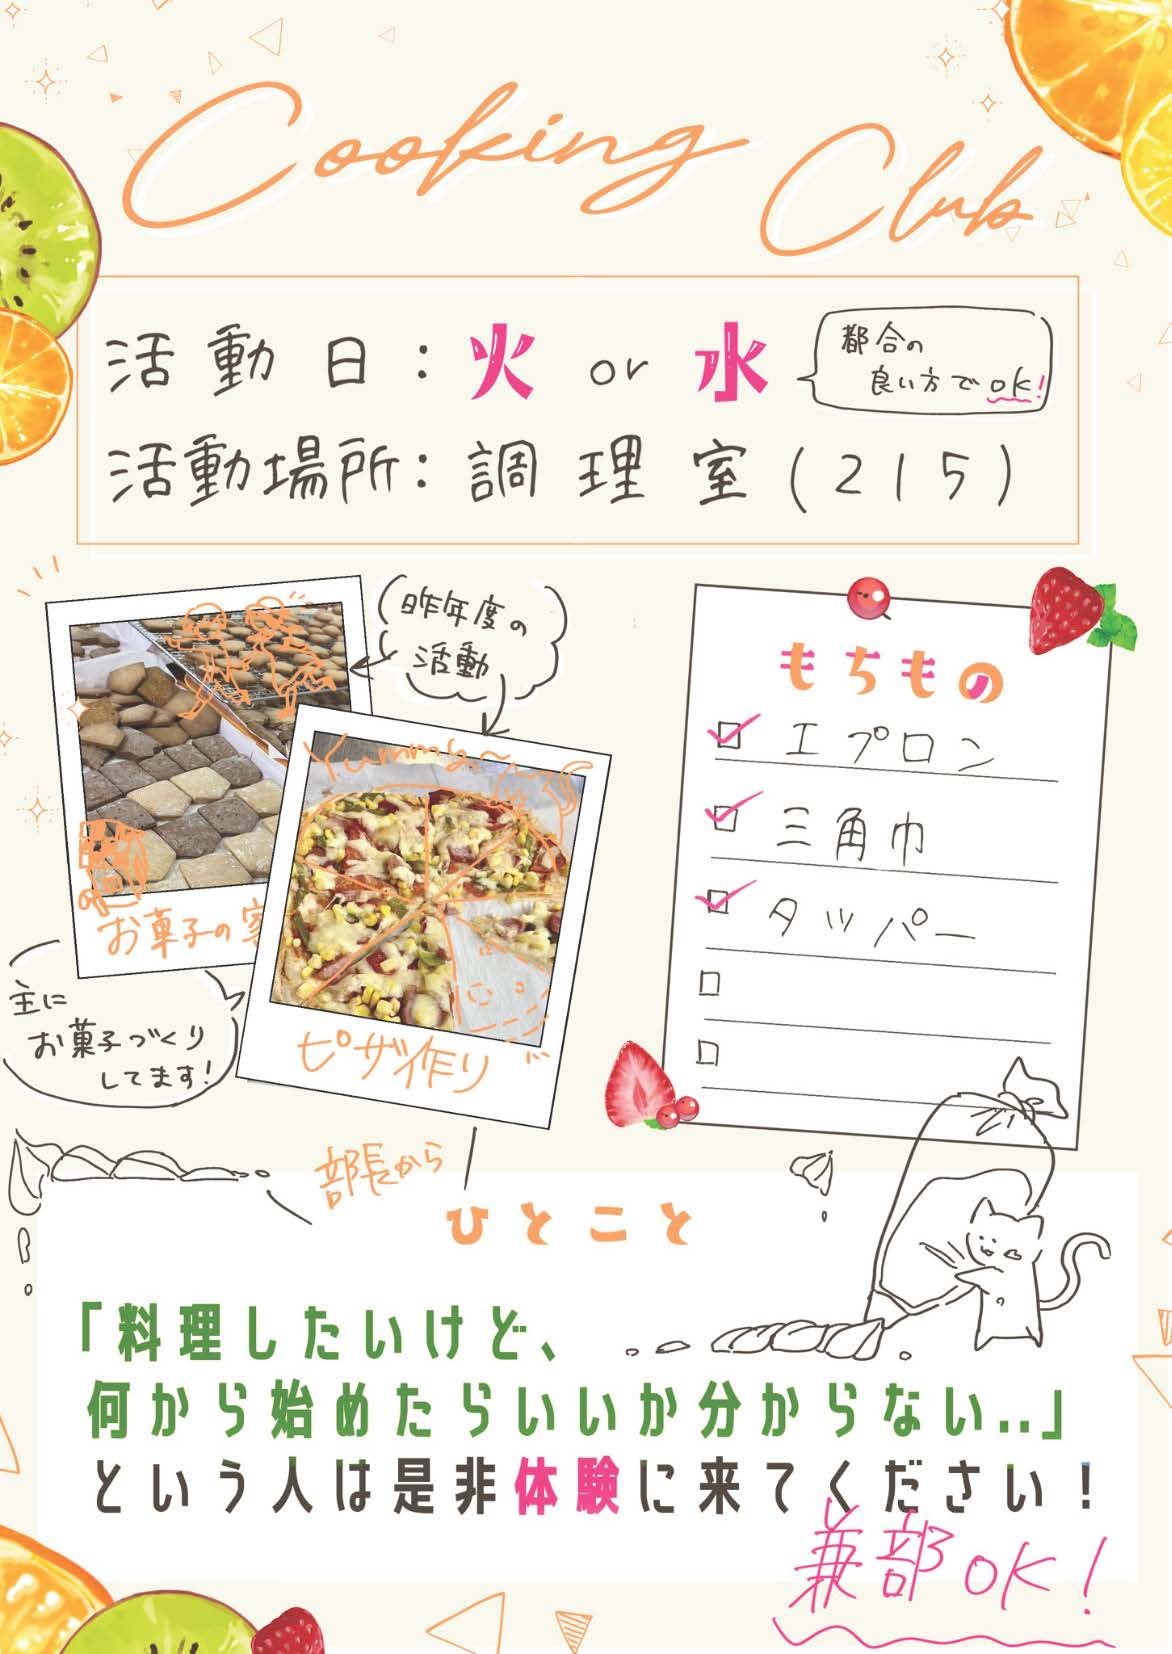 Cooking Club
活動日：火 or 水
都合の
良い方でOK!
活動場所：調理室(215)
昨年度の
活動
もちもの
エプロン
三角巾
タッパー
Yummy~
お菓子の
ピザ作り
主に
お菓子づくり
してます!
部長から
ひとこと
「料理したいけど、
何から始めたらいいか分からない..」
という人は是非体験に来てください！
兼部OK!